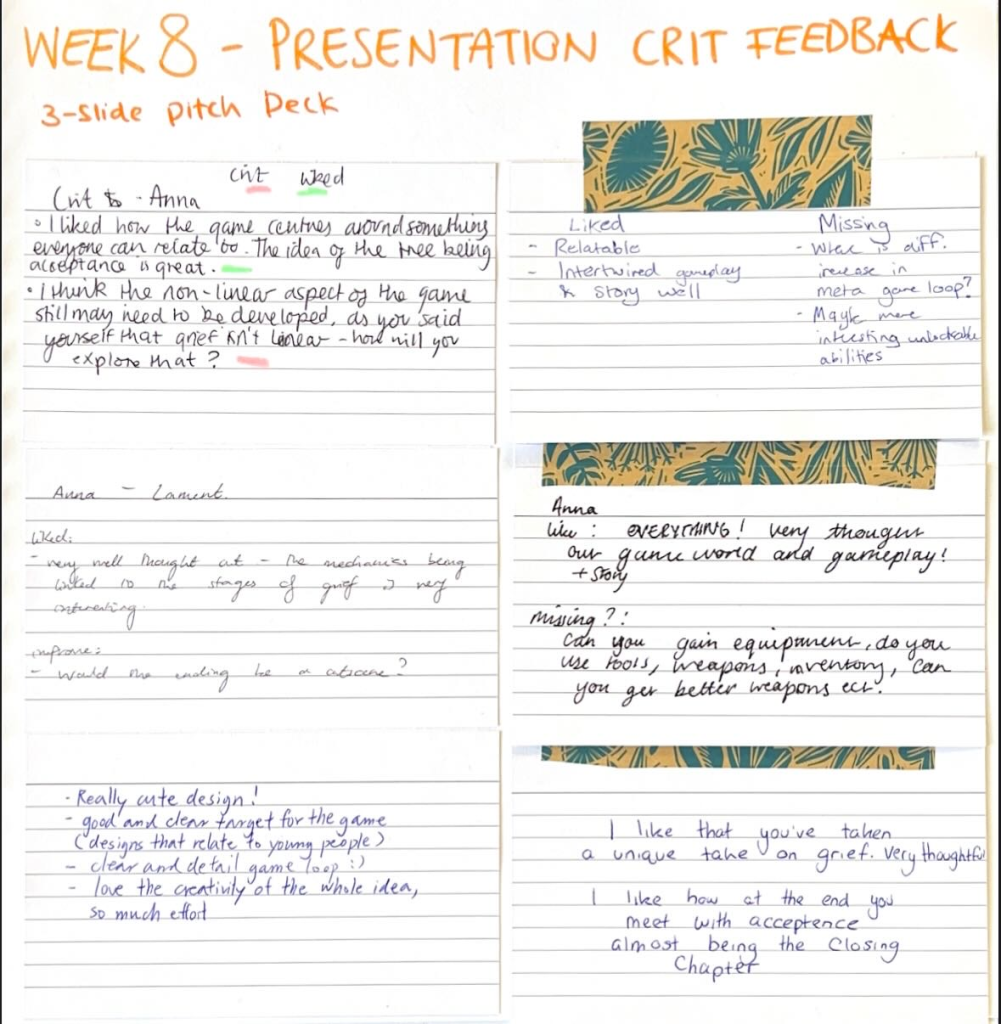 WEEK 8 - PRESENTATION CRIT FEEDBACK
3-Slide Pitch Deck
Crit Weed
Crit to - Anna
• I liked how the game centres around something
everyone can relate to. The idea of the tree being
acceptance is great.
• I think the non-linear aspect of the game
still may need to be developed, as you said
yourself that grief isn't linear - how will you
explore that?
Liked
- Relatable
- Intertwired gameplay
& story well
Missing
- What is diff.
increase in
meta game loop?
- Maybe more
intresting unlockable
abilities
Anna - Lament.
Liked:
- very well thought out - the mechanics being
linked to the stages of grief is very
interesting.
improve:
- would the ending be a cutscene?
Anna
like: EVERYTHING! very thought
out game world and gameplay!
+ Story
missing?:
Can you gain equipment, do you
use tools, weapons, inventory, can
you get better weapons ect.
- Really cute design!
- good and clear target for the game
(designs that relate to young people)
- clear and detail game loop :)
- love the creativity of the whole idea,
so much effort
I like that you've taken
a unique take on grief. Very thoughtful
I like how at the end you
meet with acceptence
almost being the Closing
Chapter